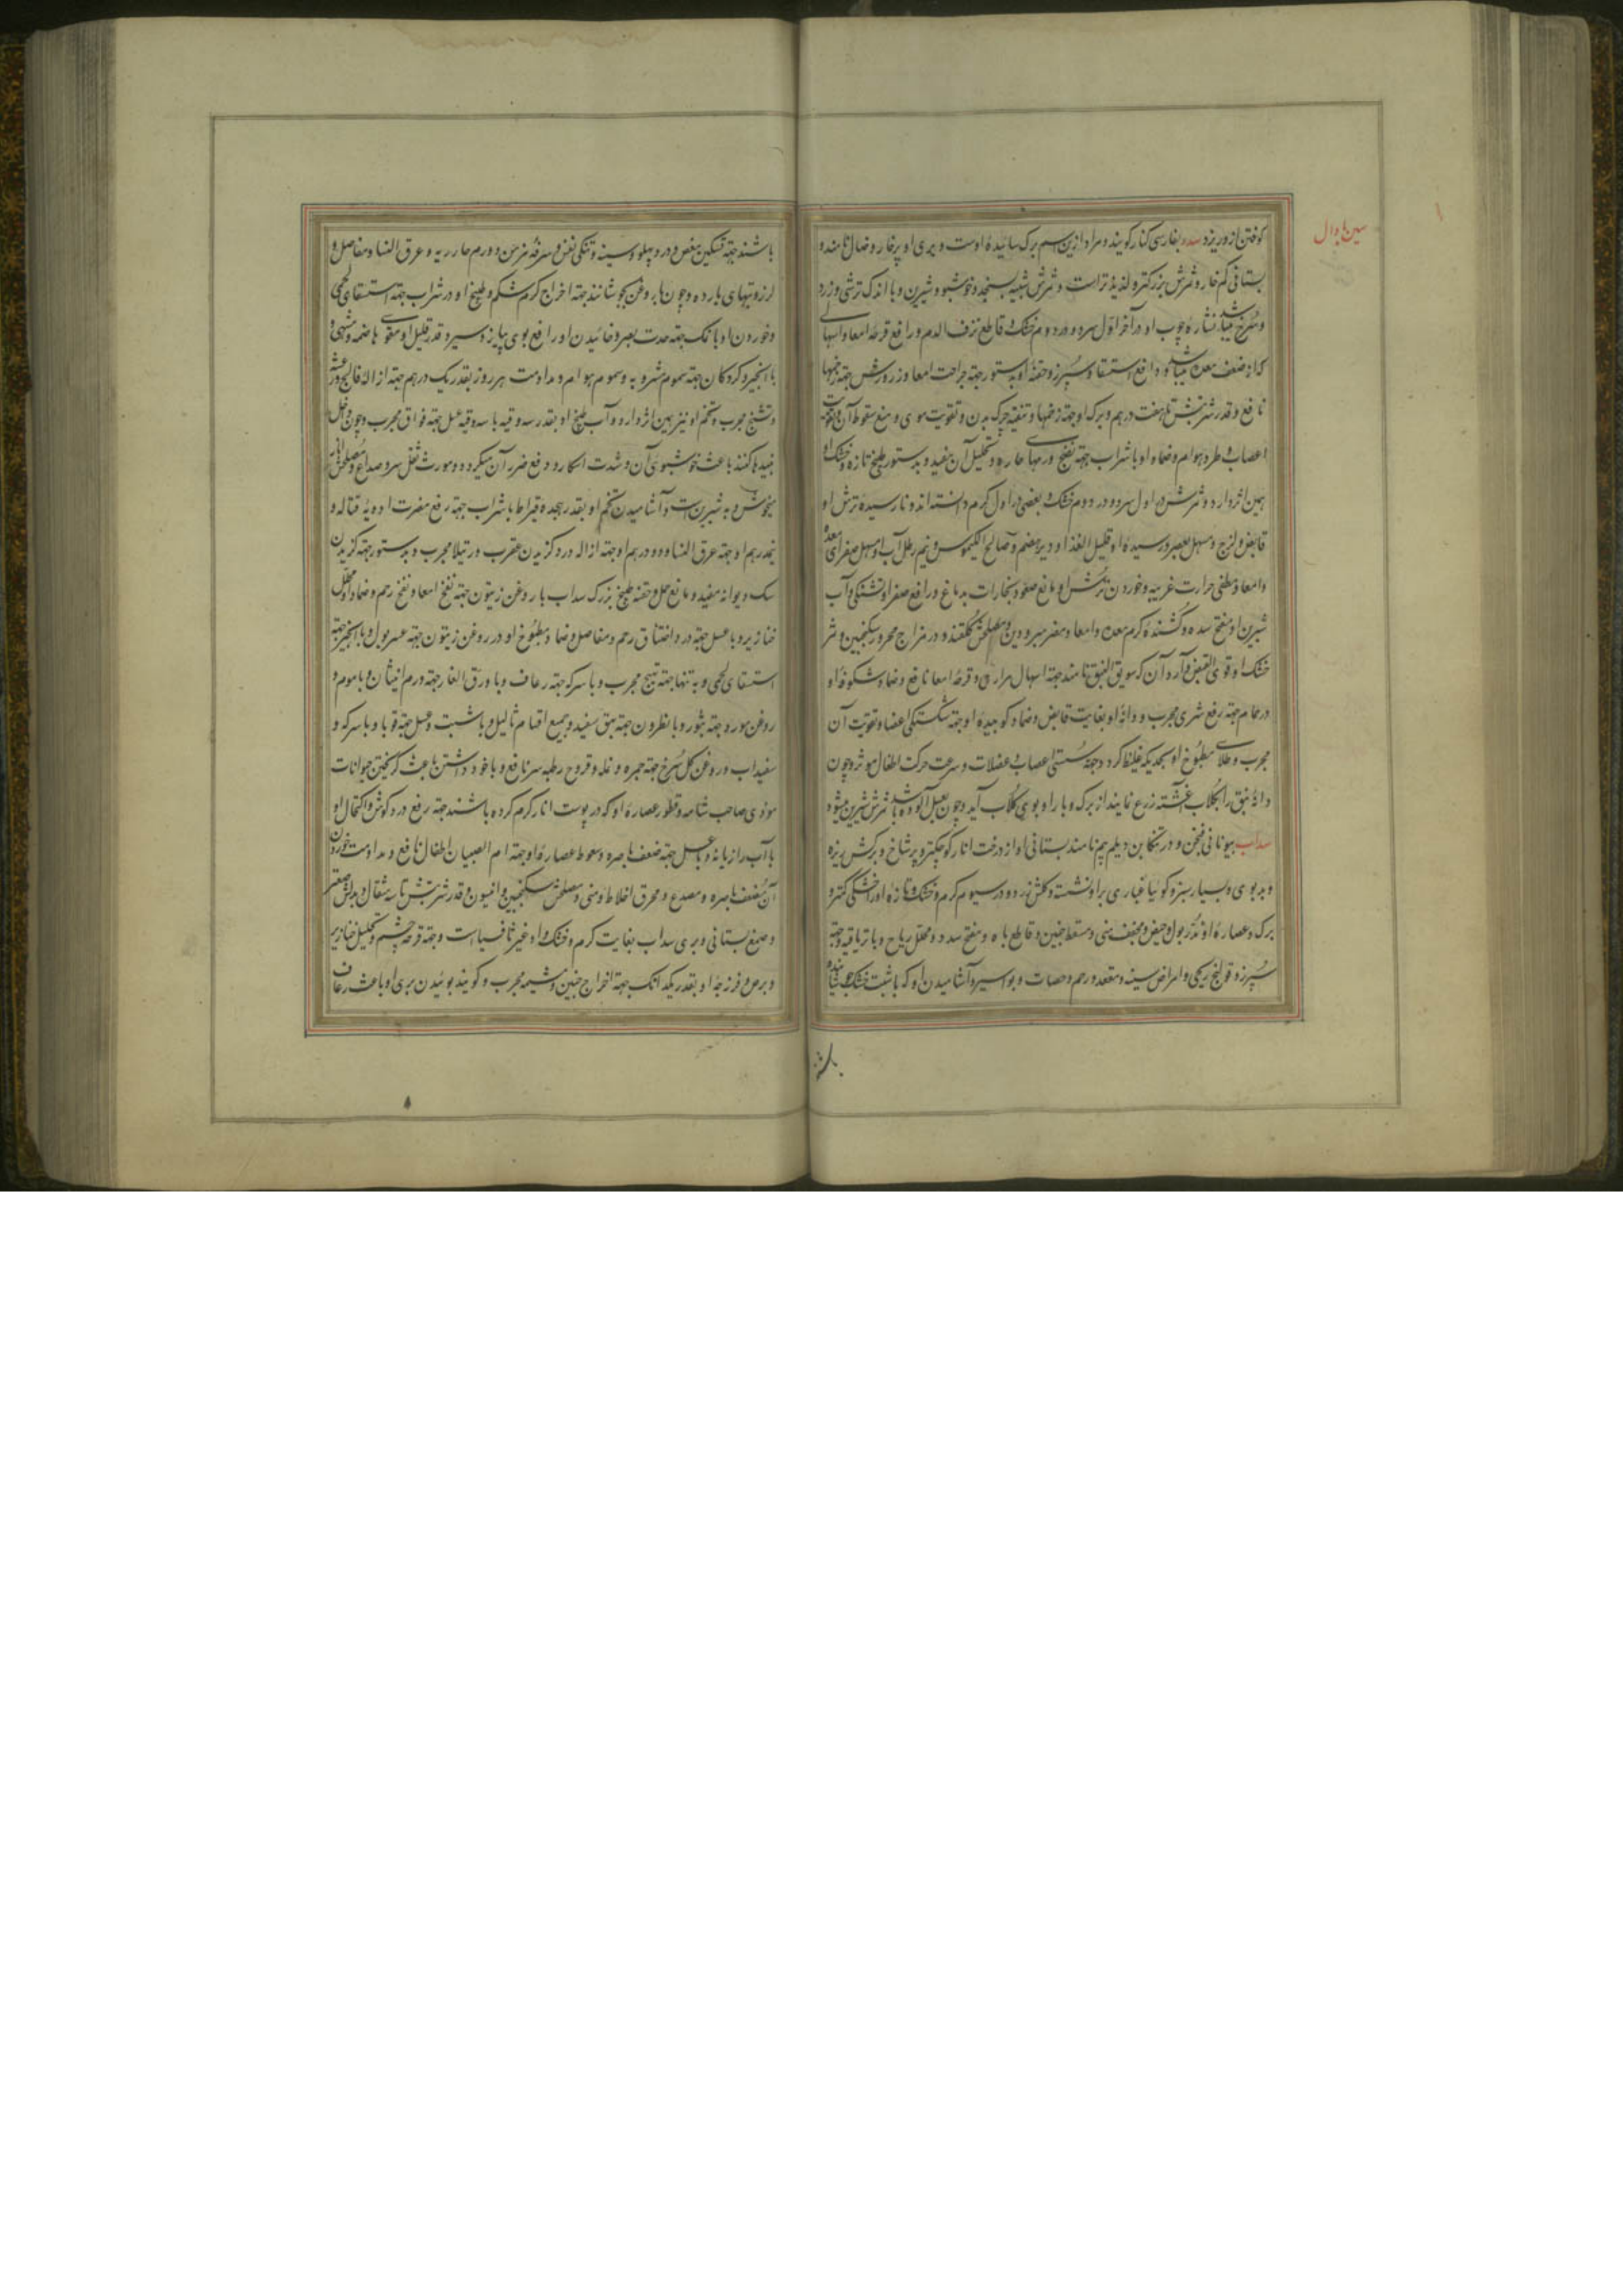 سین با دال
کوفتن از و ریزد سدر بفارسی کنار کویند و مراد ازین اسم برک سائیدهٔ اوست و بری او پرخار و ضال نامند و
بستانی کم خار و ثمرش بزرکتر و لذیذتر است و ثمرش شبیه بسنجد و خوشبو و شیرین و با اندک ترشی و زرد
و سرخ میباشد نشارهٔ چوب او در آخر اول سرد و در دوم خشک و قاطع نزف الدم و رافع قرحهٔ امعا و اسهالی
که از ضعف معده باشد و رافع استسقا و سپرز و حقنهٔ او بدستور جهة جراحت امعا و زرورش جهة زخمها
نافع و قدر شربتش تا هفت درهم و برک او جهة زخمها و تنقیه چرک بدن و تقویت موی و منع سقوط آن و تقویت
اعصاب و طرد هوام و ضماد او با شراب جهة نضج ورمهای حاره و تحلیل آن مفید و بدستور طبیخ تازه و خشک او
همین اثر دارد و ثمرش در اول سرد و در دوم خشک و بعضی در اول کرم دانسته اند و نارسیده ترش او
قابض و لزج و مسهل بعصر و رسیدهٔ او قلیل الغذا و دیرهضم و صالح الکیموس و نیم رطل آب او مسهل صفرای معده
و امعا و مطفی حرارت غریبه و خوردن ترش او مانع صعود بخارات بدماغ و رافع صفرا و تشنکی و آب
شیرین او مفتح سده و کشندهٔ کرم معده و امعا و مضر مبرودین و مصلحش کلقند و در مزاج محرور سکنجبین و ثمر
خشک او قوی القبض و آرد آن که سویق النبق نامند جهة اسهال مراری و قرحهٔ امعا نافع و ضماد شکوفهٔ او
در حمام جهة رفع شری مجرب و دانهٔ او بغایت قابض و ضماد کوبیدهٔ او جهة شکستکی اعضا و تقویت آن
مجرب و طلای مطبوخ او بحدیکه غلیظ کردد جهة سستی اعصاب و عضلات و سرعت حرکت اطفال موثر و چون
دانهٔ نبق را بکلاب آغشته زرع نمایند از برک و بار او بوی کلاب آید و چون بعسل آلوده باشد ثمرش شیرین میشود
سداب بیونانی فیجن و در تنکابن و دیلم پیم نامند بستانی او از درخت انار کوچکتر و پرشاخ و برکش ریزه
و بدبوی و بسیار سبز و کویا غباری بر او نشسته و کلش زرد و در سیوم کرم و خشک و تازهٔ او را خشکی کمتر و
برک و عصارهٔ او مدر بول و حیض و مجفف منی و مسقط جنین و قاطع باه و مفتح سدد و محلل ریاح و با تریاقیه و جهة
سپرز و قولنج ریحی و امراض سینه و مقعد و رحم و حصات و بواسیر و آشامیدن او که با شبت خشک جوشانیده
باشند
باشند جهة تسکین مغص و درد پهلو و سینه و تنکی نفس و سرفهٔ مزمن و ورم حار ریه و عرق النسا و مفاصل و
لرز و تبهای بارده و چون با روغن بجوشانند جهة اخراج کرم شکم و طبیخ او در شراب جهة استسقای لحمی
و خوردن او با نمک جهة حدت بصر و خائیدن او رافع بوی پیاز و سیر و قدر قلیل او مقوی هاضمه و مشهی و
با انجیر و کردکان جهة سموم مشروبه و سموم هوام و مداومت هر روز بقدر یک درهم جهة ازالهٔ فالج و رعشه
و تشنج مجرب و تخم او نیز همین اثر دارد و آب طبیخ او بقدر سه وقیه با سه وقیه عسل جهة فواق مجرب و چون داخل
نبیدها کنند باعث خوشبوی آن و شدت اسکار و دفع ضرر آن میکردد و مورث ثقل سر و صداع و مصلحش انار
میخوش و به شیرین است و آشامیدن تخم او بقدر هجده قیراط با شراب جهة رفع مضرت ادویهٔ قتاله و
نیمدرهم او جهة عرق النسا و دو درهم او جهة ازاله درد کزیدن عقرب و رتیلا مجرب و بدستور جهة کزیدن
سک دیوانه مفید و مانع حمل و حقنه طبیخ بزرک سداب با روغن زیتون جهة نفخ امعا و نفخ رحم و ضماد او محلل
خنازیر و با عسل جهة درد اختناق رحم و مفاصل و ضماد مطبوخ او در روغن زیتون جهة عسر بول و با انجیر جهة
استسقای لحمی و به تنها جهة تهیج مجرب و با سرکه جهة رعاف و با ورق الغار جهة ورم انثیان و با موم و
روغن مورد جهة بثور و با نطرون جهة بهق سفید و جمیع اقسام ثآلیل و با شبت و عسل جهة قوبا و با سرکه و
سفیداب و روغن کل سرخ جهة حمره و نمله و قروح رطبه سر نافع و با خود داشتن باعث کریختن حیوانات
موذی صاحب شامه و قطور عصارهٔ او که در پوست انار کرم کرده باشند جهة رفع درد کوش و اکتحال او
با آب رازیانه و با عسل جهة ضعف باصره و سعوط عصارهٔ او جهة ام الصبیان اطفال نافع و مداومت خوردن
آن مضعف باصره و مصدع و محرق اخلاط و منی و مصلحش سکنجبین و انیسون و قدر شربتش تا سه مثقال و بدلش صعتر
و صمغ بستانی و بری سداب بغایت کرم و خشک و او غیر ثافسیاست و جهة قرحهٔ چشم و تحلیل خنازیر
و برص و فرزجهٔ او بقدر یکدانک جهة اخراج جنین و مشیمه مجرب و کویند بوئیدن بری او باعث رعاف